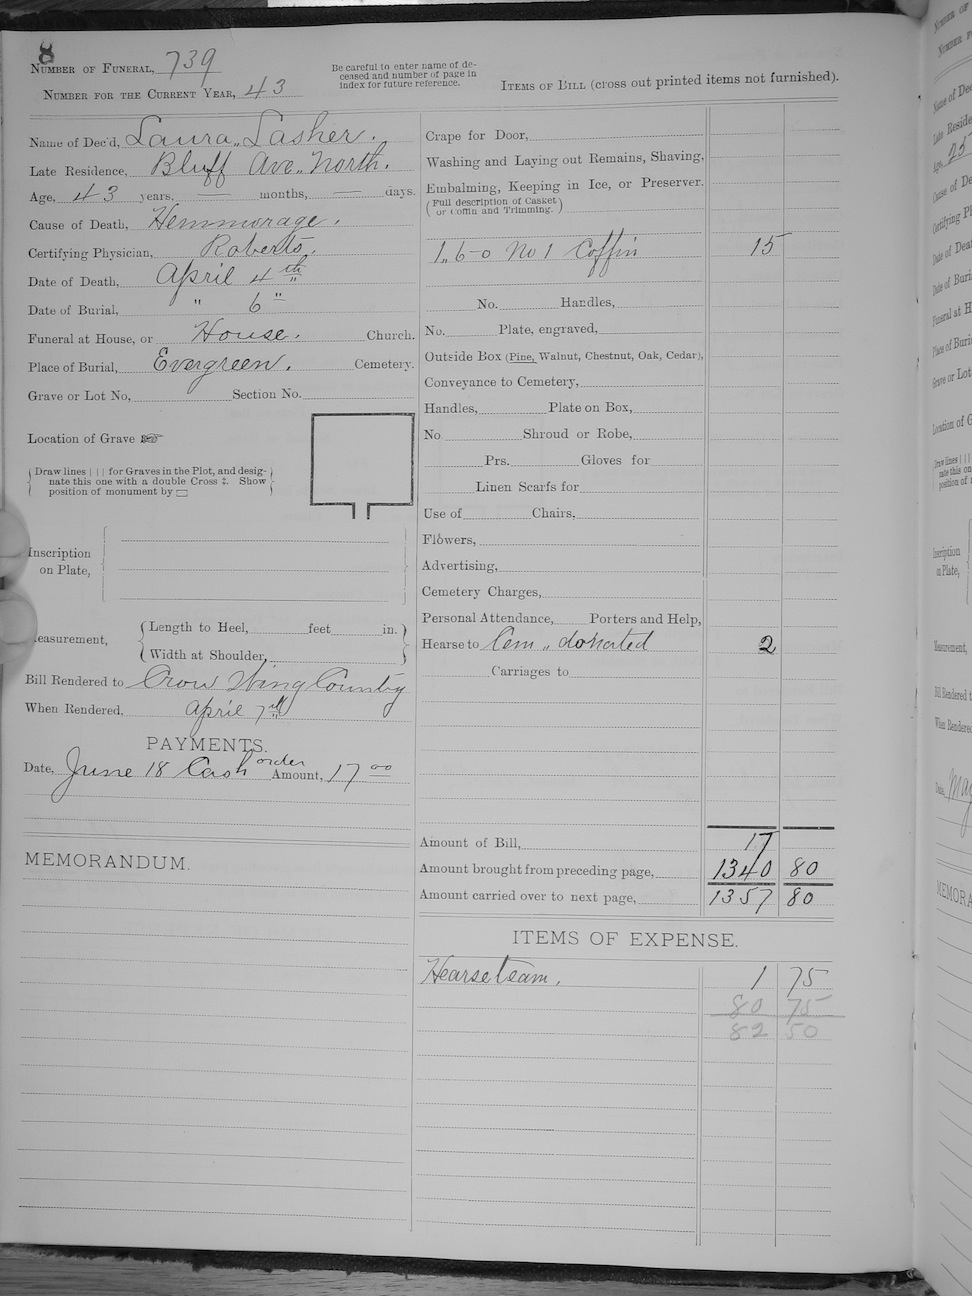 8
NUMBER OF FUNERAL, 739
NUMBER FOR THE CURRENT YEAR, 43
Be careful to enter name of de-
ceased and number of page in
index for future reference.
Name of Dec'd, Laura Lasher.
Late Residence, Bluff Ave. North.
Age, 43 years, — months, — days.
Cause of Death, Hemmorage.
Certifying Physician, Roberts.
Date of Death, April 4th
Date of Burial, " 6 "
Funeral at House, or House. Church.
Place of Burial, Evergreen. Cemetery.
Grave or Lot No, Section No.
Location of Grave ☞
Draw lines | | | for Graves in the Plot, and desig-
nate this one with a double Cross ‡. Show
position of monument by ▭
Inscription
on Plate,
easurement,
Length to Heel, feet in.
Width at Shoulder,
Bill Rendered to Crow Wing County
When Rendered, April 7th
PAYMENTS.
Date, June 18 Cash order Amount, 17 00
MEMORANDUM.
ITEMS OF BILL (cross out printed items not furnished).
Crape for Door,
Washing and Laying out Remains, Shaving,
Embalming, Keeping in Ice, or Preserver.
(Full description of Casket
or Coffin and Trimming.)
1 6-0 No 1 Coffin 15
No. Handles,
No. Plate, engraved,
Outside Box (Pine, Walnut, Chestnut, Oak, Cedar),
Conveyance to Cemetery,
Handles, Plate on Box,
No Shroud or Robe,
Prs. Gloves for
Linen Scarfs for
Use of Chairs,
Flowers,
Advertising,
Cemetery Charges,
Personal Attendance, Porters and Help,
Hearse to Cem " donated 2
Carriages to
Amount of Bill, 17
Amount brought from preceding page, 1340 80
Amount carried over to next page, 1357 80
ITEMS OF EXPENSE.
Hearse team. 1 75
80 75
82 50